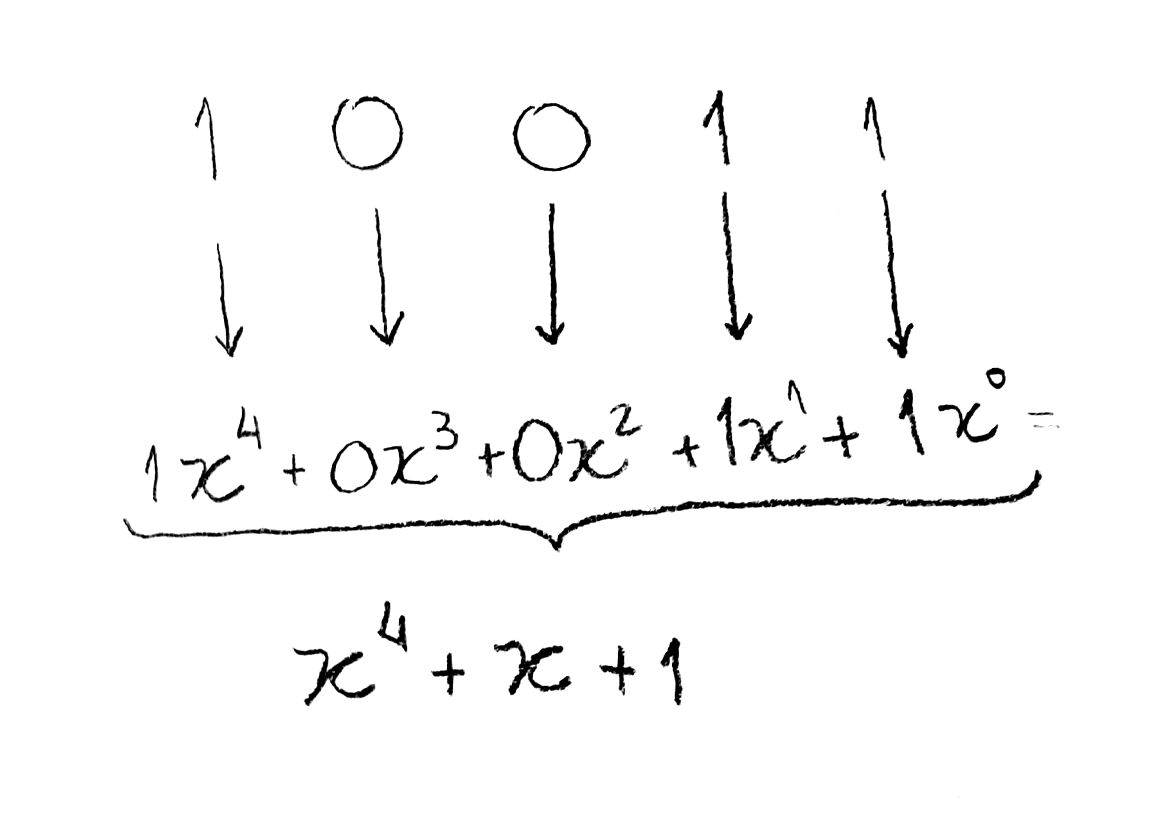 1 0 0 1 1
1x⁴ + 0x³ + 0x² + 1x¹ + 1x⁰ =
x⁴ + x + 1